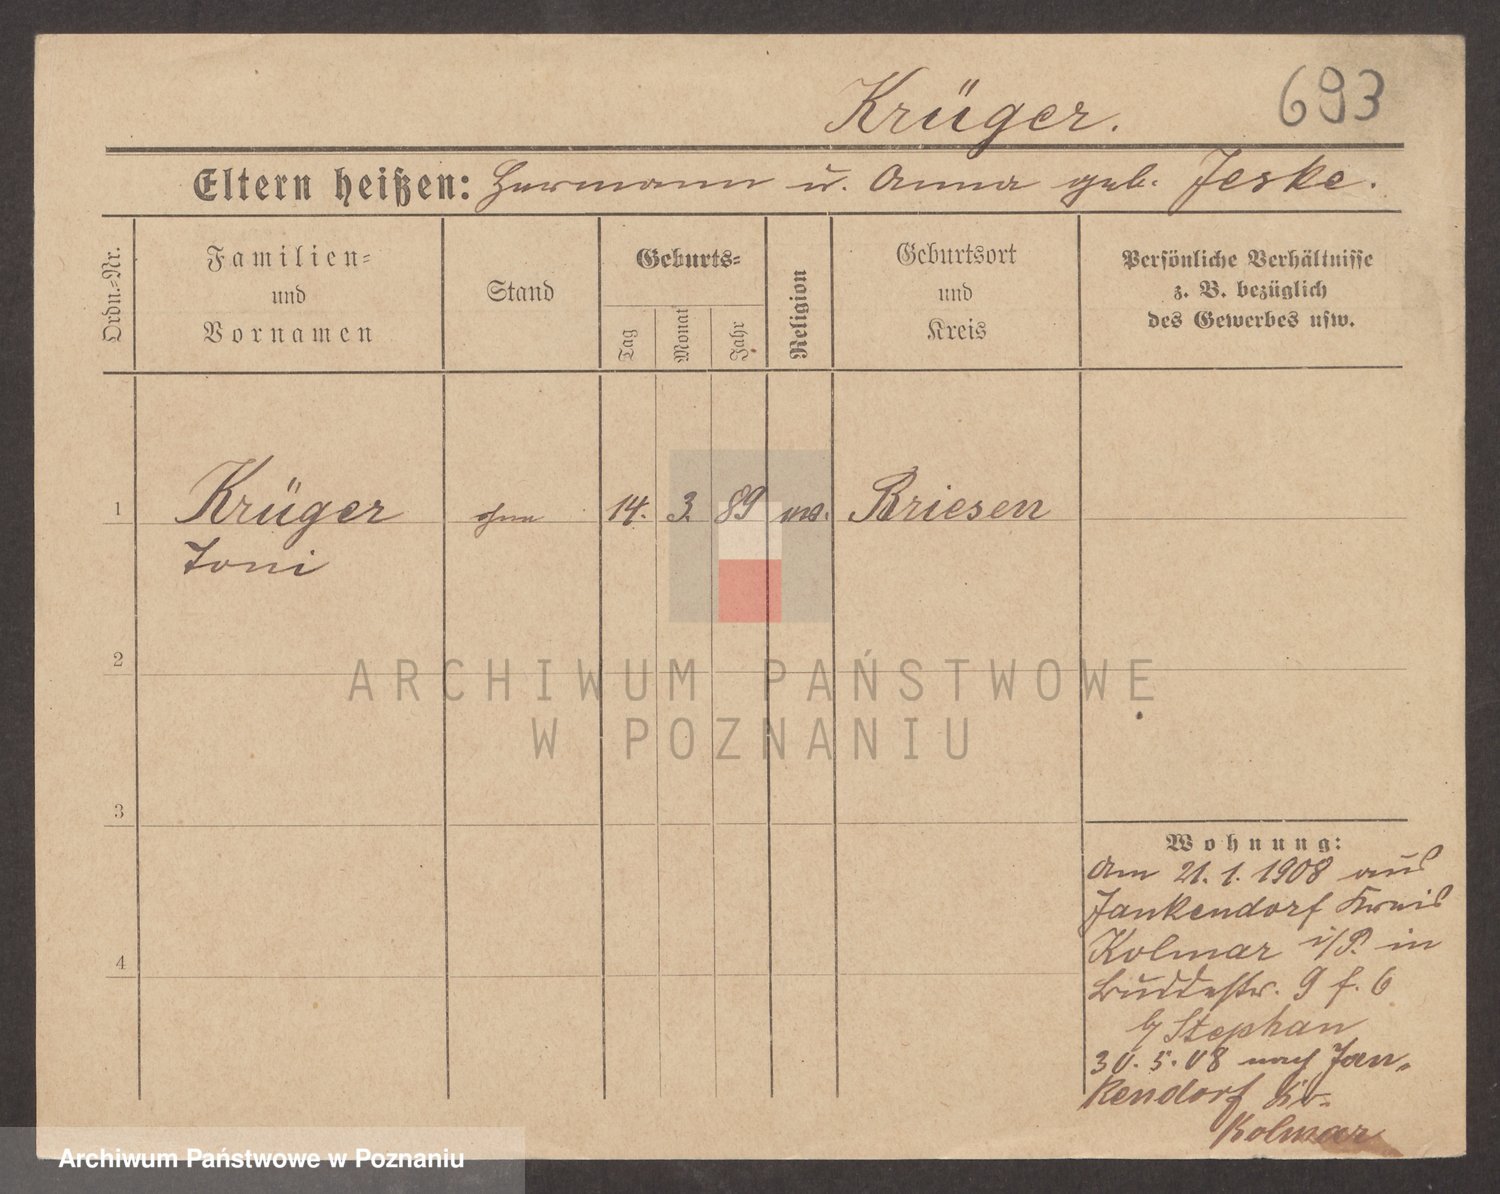 Krüger.
693
Eltern heißen: Hermann u. Anna geb. Jeske.
Ordn.-Nr.
Familien-
und
Vornamen
Stand
Geburts-
Tag
Monat
Jahr
Religion
Geburtsort
und
Kreis
Persönliche Verhältnisse
z. B. bezüglich
des Gewerbes usw.
1
Krüger
ohne
14.
3.
89
Briesen
Toni
2
3
4
Wohnung:
Am 21. 1. 1908 aus
Jankendorf Kreis
Kolmar i/P. in
Buddestr. 9 f. 6
b/ Stephan
30. 5. 08 nach Jan-
kendorf Kr.
Kolmar
ARCHIWUM PAŃSTWOWE
W POZNANIU
Archiwum Państwowe w Poznaniu